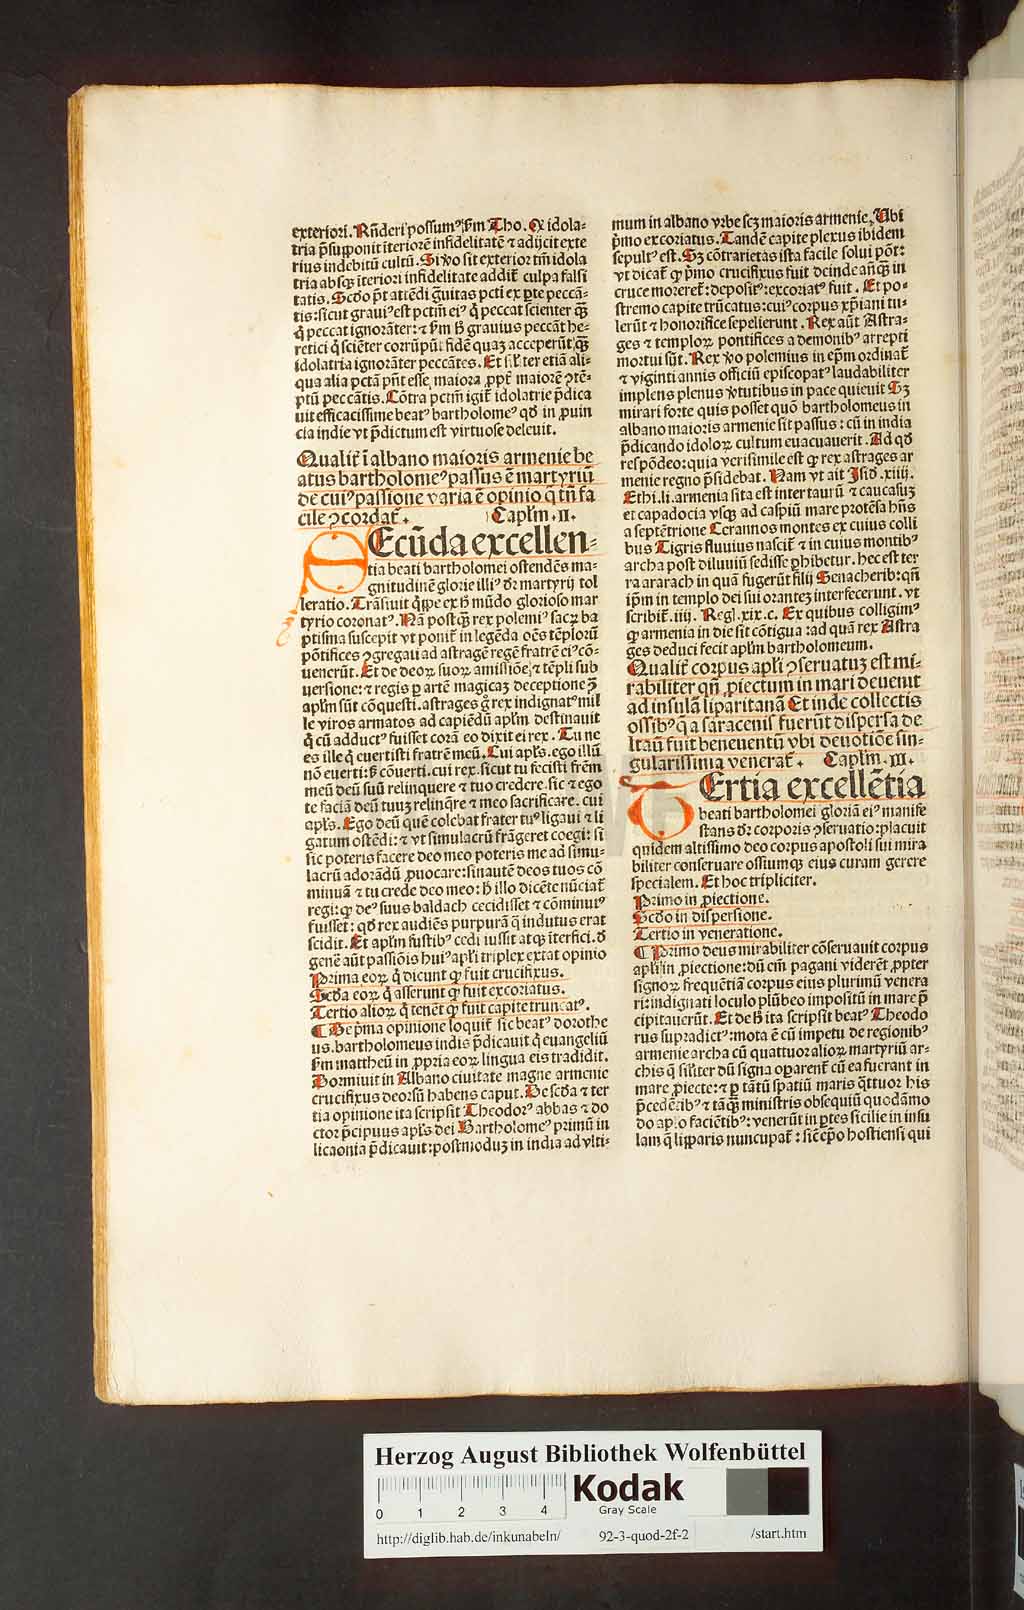 exteriori. Rn̄deri possumꝰ ẜm Tho. Ꝙ idola-
tria p̄supponit īteriorē infidelitatē ⁊ adijcit exte
rius indebitū cultū. Si ꝟo sit exterior tm̄ idola
tria absqꝫ īteriori infidelitate addit̄ culpa falsi
tatis. Scd̓o p̄t atiēdi g̃uitas pcti ex ꝑte peccā-
tis: sicut grauiꝰ est pctm̄ eiꝰ q̇ peccat scienter qꝫ̄
q̇ peccat ignorāter: ⁊ ẜm ħ grauius peccāt he-
retici q̇ sciēter corrūpūt fidē quaꝫ acceperūt qꝫ̄
idolatria ignorāter peccātes. Et sil̓r ter etiā ali-
qua alia pctā pn̄t esse maiora ꝓpt̄ maiorē ꝯtē-
ptū peccātis. Cōtra pctm̄ igit̄ idolatrie p̄dica
uit efficacissime beatꝰ bartholomeꝰ qd̓ in ꝓuin
cia indie vt p̄dictum est virtuose deleuit.
Qualit̄ ī albano maioris armenie be
atus bartholomeꝰ passus ē martyriū
de cuiꝰ passione varia ē opinio q̄ tn̄ fa
cile ꝯcordat̄. Capl̓m .II.
SEcūda excellen-
tia beati bartholomei ostendēs ma-
gnitudinē glorie illiꝰ dr̄ martyrij tol
leratio. Trāsiuit q̇ppe ex ħ mūdo glorioso mar
tyrio coronatꝰ. Nā postqꝫ̄ rex polemiꝰ sacꝝ ba
ptisma suscepit vt ponit̄ in legēda oēs tēploꝝ
pōtifices ꝯgregaui ad astragē regē fratrē eiꝰ cō-
uenerūt. Et de deoꝝ suoꝝ amissiōe, ⁊ tēpli sub
uersione: ⁊ regis ꝑ artē magicaꝫ deceptione ꝯ̄
apl̓m sūt cōquesti. astrages g̊ rex indignatꝰ mil
le viros armatos ad capiēdū apl̓m destinauit
q̇ cū adductꝰ fuisset corā eo dixit ei rex. Tu ne
es ille q̇ euertisti fratrē meū. Cui apl̓s. ego illū
nō euerti: ẜ cōuerti. cui rex. sicut tu fecisti fr̄em
meū deū suū relinquere ⁊ tuo credere sic ⁊ ego
te faciā deū tuuꝫ relinq̄re ⁊ meo sacrificare. cui
apl̓s. Ego deū quē colebat frater tuꝰ ligaui ⁊ li
gatum ostēdi: ⁊ vt simulacrū frāgeret coegi: si
sic poteris facere deo meo poteris me ad simu-
lacrū adorādū ꝓuocare: sinautē deos tuos cō
minuā ⁊ tu crede deo meo: ħ illo dicēte nūciat̄
regi: ꝙ deꝰ suus baldach cecidisset ⁊ cōminutꝰ
fuisset: qd̓ rex audiēs purpurā q̄ indutus erat
scidit. Et apl̓m fustibꝰ cedi iussit atqꝫ īterfici. d̓
genē aūt passiōis huiꝰ apl̓i triplex extat opinio
Prima eoꝝ q̇ dicunt ꝙ fuit crucifixus.
Secd̓a eoꝝ q̇ asserunt ꝙ fuit excoriatus.
Tertio alioꝝ q̇ tenēt ꝙ fuit capite truncatꝰ.
¶ De p̄ma opinione loquit̄ sic beatꝰ dorothe
us. bartholomeus indis p̄dicauit q̇ euangeliū
ẜm mattheū in ꝓpria eoꝝ lingua eis tradidit.
Dormiuit in Albano ciuitate magne armenie
crucifixus deorsū habens caput. De scd̓a ⁊ ter
tia opinione ita scripsit Theodorꝰ abbas ⁊ do
ctor p̄cipuus apl̓s dei Bartholomeꝰ primū in
licaonia p̄dicauit: postmoduꝫ in india ad vlti-
mum in albano vrbe scꝫ maioris armenie, Vbi
p̄mo excoriatus. Tandē capite plexus ibidem
sepultꝰ est. Sꝫ cōtrarietas ista facile solui pōt:
vt dicat̄ ꝙ p̄mo crucifixus fuit deinde anqꝫ̄ in
cruce moreret̄: depositꝰ: excoriatꝰ fuit. Et po-
stremo capite trūcatus: cuiꝰ corpus xp̄iani tu-
lerūt ⁊ honorifice sepelierunt. Rex aūt Astra-
ges ⁊ temploꝝ pontifices a demonibꝰ arrepti
mortui sūt. Rex ꝟo polemius in ep̄m ordinat̄
⁊ viginti annis officiū episcopatꝰ laudabiliter
implens plenus ꝟtutibus in pace quieuit Sꝫ
mirari forte quis posset quō bartholomeus in
albano maioris armenie sit passus: cū in india
p̄dicando idoloꝝ cultum euacuauerit. Ad qd̓
respōdeo: quia verisimile est ꝙ rex astrages ar
menie regno p̄sidebat. Nam vt ait Isid̓. xiiij.
Ethi. li. armenia sita est inter taurū ⁊ caucasuꝫ
et capadocia vsqꝫ ad caspiū mare protēsa hn̄s
a septētrione Cerannos montes ex cuius colli
bus Tigris fluuius nascit̄ ⁊ in cuius montibꝰ
archa post diluuiū sedisse ꝑhibetur. hec est ter
ra ararach in quā fugerūt filij Senacherib: qn̄
ip̄m in templo dei sui orantez interfecerunt. vt
scribit̄. iiij. Regl̓. xix. c. Ex quibus colligimꝰ
ꝙ armenia in die sit cōtigua: ad quā rex Astra
ges deduci fecit apl̓m bartholomeum.
Qualit̄ corpus apl̓i ꝯseruatuꝫ est mi-
rabiliter qn̄ ꝓiectum in mari deuenit
ad insulā liparitanā Et inde collectis
ossibꝰ q̄ a saracenis fuerūt dispersa de
latū fuit beneuentū vbi deuotiōe sin-
gularissima venerat̄. Capl̓m .III.
TErtia excellētia
beati bartholomei gloriā eiꝰ manife
stans dr̄ corporis ꝯseruatio: placuit
quidem altissimo deo corpus apostoli sui mira
biliter conseruare ossiumqꝫ eius curam gerere
specialem. Et hoc tripliciter.
Primo in ꝓiectione.
Scd̓o in dispersione.
Tertio in veneratione.
¶ Primo deus mirabiliter cōseruauit corpus
apl̓i in ꝓiectione: dū cm̄ pagani viderēt ꝓpter
signoꝝ frequētiā corpus eius plurimū venera
ri: indignati loculo plūbeo impositū in mare p̄
cipitauerūt. Et de ħ ita scripsit beatꝰ Theodo
rus supradictꝰ: mota ē cū impetu de regionibꝰ
armenie archa cū quattuor alioꝝ martyriū ar-
chis q̄ sil̓iter dū signa oꝑarent̄ cū ea fuerant in
mare ꝓiecte: ⁊ ꝑ tātū spatiū maris q̄ttuor his
p̄cedētibꝰ ⁊ tāqꝫ ministris obsequiū quodāmo
do apl̓o faciētibꝰ: venerūt in ꝑtes sicilie in insu
lam q̄ lipparis nuncupat̄: sic̄ ep̄o hostiensi qui
Herzog August Bibliothek Wolfenbüttel
0 1 2 3 4
Kodak
Gray Scale
http://diglib.hab.de/inkunabeln/ 92-3-quod-2f-2 /start.htm